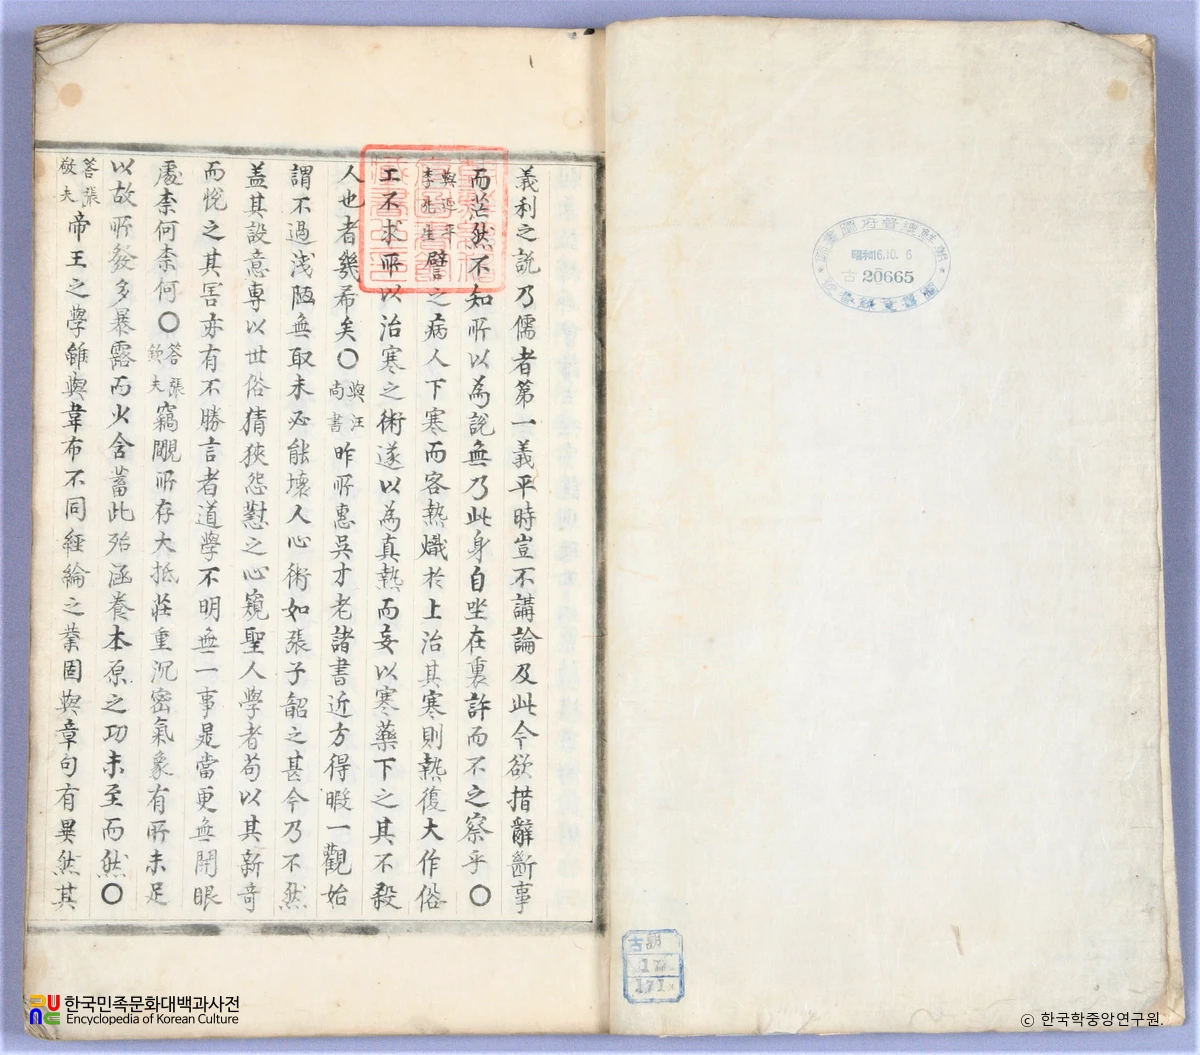 義利之說乃儒者第一義平時豈不講論及此今欲措辭斷事
而茫然不知所以為說無乃此身自坐在裏許而不之察乎〇
與延平
李先生
譬之病人下寒而客熱熾於上治其寒則熱復大作俗
工不求所以治寒之術遂以為真熱而妄以寒藥下之其不殺
人也者幾希矣〇
與汪
尚書
昨所惠吳才老諸書近方得暇一觀始
謂不過淺陋無取未必能壞人心術如張子韶之甚今乃不然
蓋其設意專以世俗猜狹怨懟之心窺聖人學者苟以其新奇
而悅之其害亦有不勝言者道學不明無一事是當更無開眼
處柰何柰何〇
答張
欽夫
竊覸所存大抵莊重沉密氣象有所未足
以故所發多暴露而少含蓄此殆涵養本原之功未至而然〇
答張
敬夫
帝王之學雖與韋布不同經綸之業固與章句有異然其
昭和16.10.6
古 20665
古朝
17
171
한국민족문화대백과사전
Encyclopedia of Korean Culture
ⓒ 한국학중앙연구원.